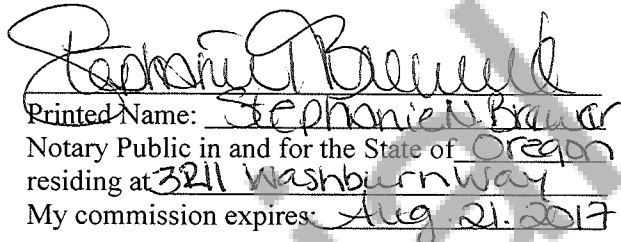 Stephanie N
Printed Name: Stephanie N.
Notary Public in and for the State of Oregon
residing at 3211 Washburn Way
My commission expires: Aug. 21. 2017